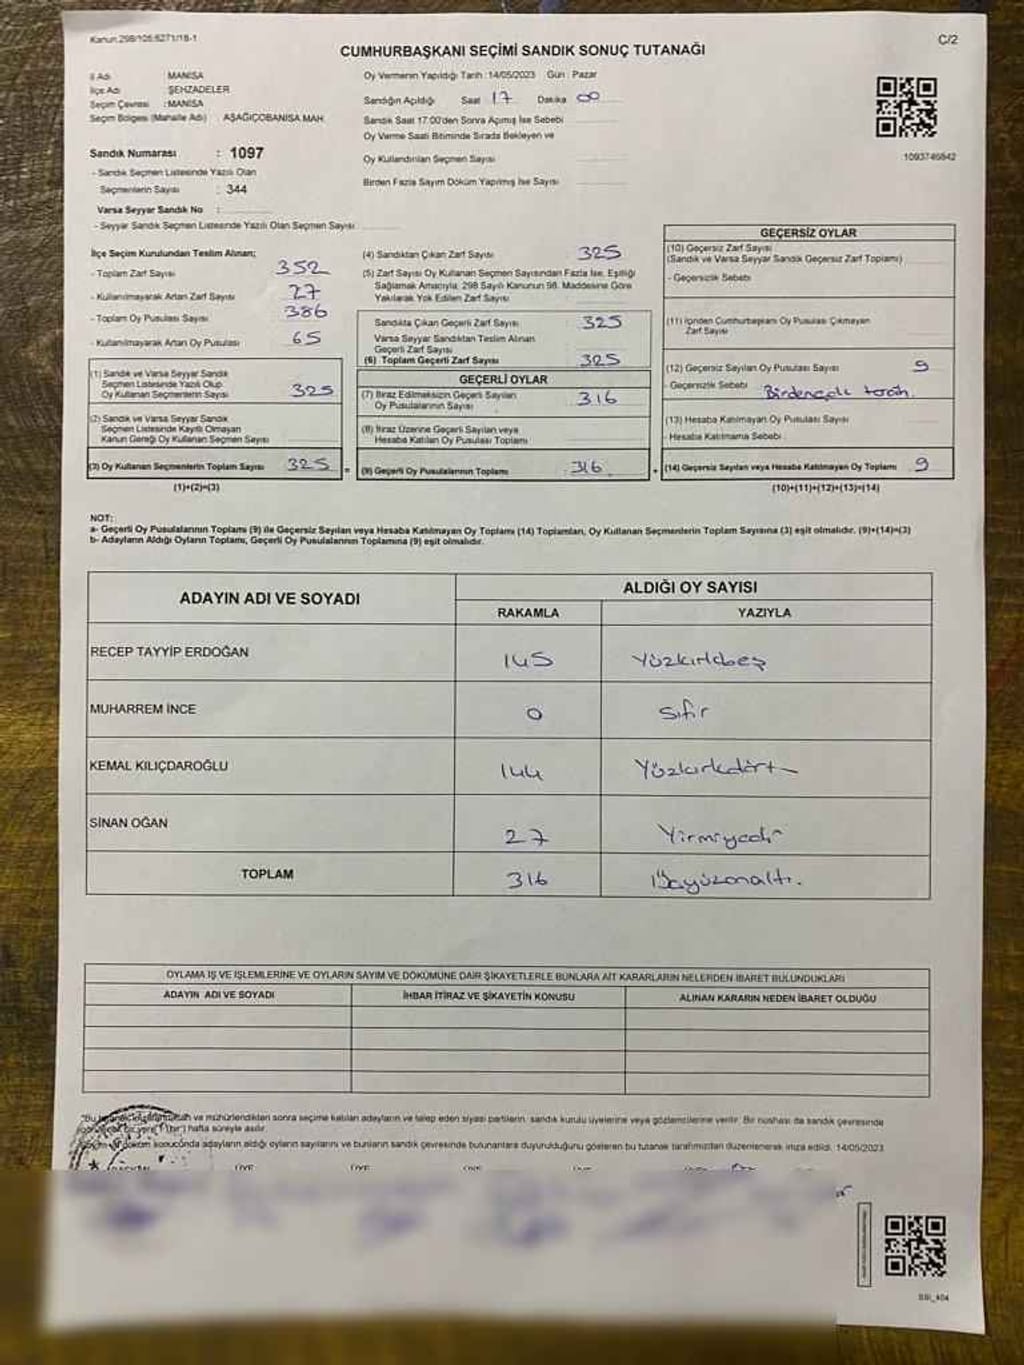 Kanun:298/105:6271/18-1
C/2
CUMHURBAŞKANI SEÇİMİ SANDIK SONUÇ TUTANAĞI
İl Adı MANİSA
İlçe Adı ŞEHZADELER
Seçim Çevresi :MANİSA
Seçim Bölgesi (Mahalle Adı) AŞAĞIÇOBANİSA MAH.
Oy Vermenin Yapıldığı Tarih :14/05/2023 Gün : Pazar
Sandığın Açıldığı Saat 17 Dakika 00
Sandık Saat 17:00'den Sonra Açılmış İse Sebebi
Oy Verme Saati Bitiminde Sırada Bekleyen ve
Oy Kullandırılan Seçmen Sayısı
Birden Fazla Sayım Döküm Yapılmış İse Sayısı
1093746842
Sandık Numarası : 1097
- Sandık Seçmen Listesinde Yazılı Olan
Seçmenlerin Sayısı : 344
Varsa Seyyar Sandık No :
- Seyyar Sandık Seçmen Listesinde Yazılı Olan Seçmen Sayısı
İlçe Seçim Kurulundan Teslim Alınan;
- Toplam Zarf Sayısı 352
- Kullanılmayarak Artan Zarf Sayısı 27
- Toplam Oy Pusulası Sayısı 386
- Kullanılmayarak Artan Oy Pusulası 65
(1) Sandık ve Varsa Seyyar Sandık
Seçmen Listesinde Yazılı Olup
Oy Kullanan Seçmenlerin Sayısı 325
(2) Sandık ve Varsa Seyyar Sandık
Seçmen Listesinde Kayıtlı Olmayan
Kanun Gereği Oy Kullanan Seçmen Sayısı
(3) Oy Kullanan Seçmenlerin Toplam Sayısı 325 =
(1)+(2)=(3)
(4) Sandıktan Çıkan Zarf Sayısı 325
(5) Zarf Sayısı Oy Kullanan Seçmen Sayısından Fazla İse, Eşitliği
Sağlamak Amacıyla; 298 Sayılı Kanunun 98. Maddesine Göre
Yakılarak Yok Edilen Zarf Sayısı
Sandıkta Çıkan Geçerli Zarf Sayısı : 325
Varsa Seyyar Sandıktan Teslim Alınan
Geçerli Zarf Sayısı
(6) Toplam Geçerli Zarf Sayısı 325
GEÇERLİ OYLAR
(7) İtiraz Edilmeksizin Geçerli Sayılan
Oy Pusulalarının Sayısı : 316
(8) İtiraz Üzerine Geçerli Sayılan veya
Hesaba Katılan Oy Pusulası Toplamı
(9) Geçerli Oy Pusulalarının Toplamı : 316 +
GEÇERSİZ OYLAR
(10) Geçersiz Zarf Sayısı
(Sandık ve Varsa Seyyar Sandık Geçersiz Zarf Toplamı)
- Geçersizlik Sebebi
(11) İçinden Cumhurbaşkanı Oy Pusulası Çıkmayan
Zarf Sayısı
(12) Geçersiz Sayılan Oy Pusulası Sayısı 9
- Geçersizlik Sebebi Birdençok tercih.
(13) Hesaba Katılmayan Oy Pusulası Sayısı
- Hesaba Katılmama Sebebi :
(14) Geçersiz Sayılan veya Hesaba Katılmayan Oy Toplamı 9
(10)+(11)+(12)+(13)=(14)
NOT:
a- Geçerli Oy Pusulalarının Toplamı (9) ile Geçersiz Sayılan veya Hesaba Katılmayan Oy Toplamı (14) Toplamları, Oy Kullanan Seçmenlerin Toplam Sayısına (3) eşit olmalıdır. (9)+(14)=(3)
b- Adayların Aldığı Oyların Toplamı, Geçerli Oy Pusulalarının Toplamına (9) eşit olmalıdır.
ADAYIN ADI VE SOYADI ALDIĞI OY SAYISI
RAKAMLA YAZIYLA
RECEP TAYYİP ERDOĞAN 145 Yüzkırkbeş
MUHARREM İNCE 0 Sıfır
KEMAL KILIÇDAROĞLU 144 Yüzkırkdört
SİNAN OĞAN 27 Yirmiyedi
TOPLAM 316 Üçyüzonaltı.
OYLAMA İŞ VE İŞLEMLERİNE VE OYLARIN SAYIM VE DÖKÜMÜNE DAİR ŞİKAYETLERLE BUNLARA AİT KARARLARIN NELERDEN İBARET BULUNDUKLARI
ADAYIN ADI VE SOYADI İHBAR İTİRAZ VE ŞİKAYETİN KONUSU ALINAN KARARIN NEDEN İBARET OLDUĞU
ve mühürlendikten sonra seçime katılan adayların ve talep eden siyasi partilerin, sandık kurulu üyelerine veya gözlemcilerine verilir. Bir nüshası da sandık çevresinde
hafta süreyle asılır.
döküm sonucunda adayların aldığı oyların sayılarını ve bunların sandık çevresinde bulunanlara duyurulduğunu gösteren bu tutanak tarafımızdan düzenlenerek imza edildi. 14/05/2023
BAŞKAN ÜYE ÜYE ÜYE ÜYE
SSI_404